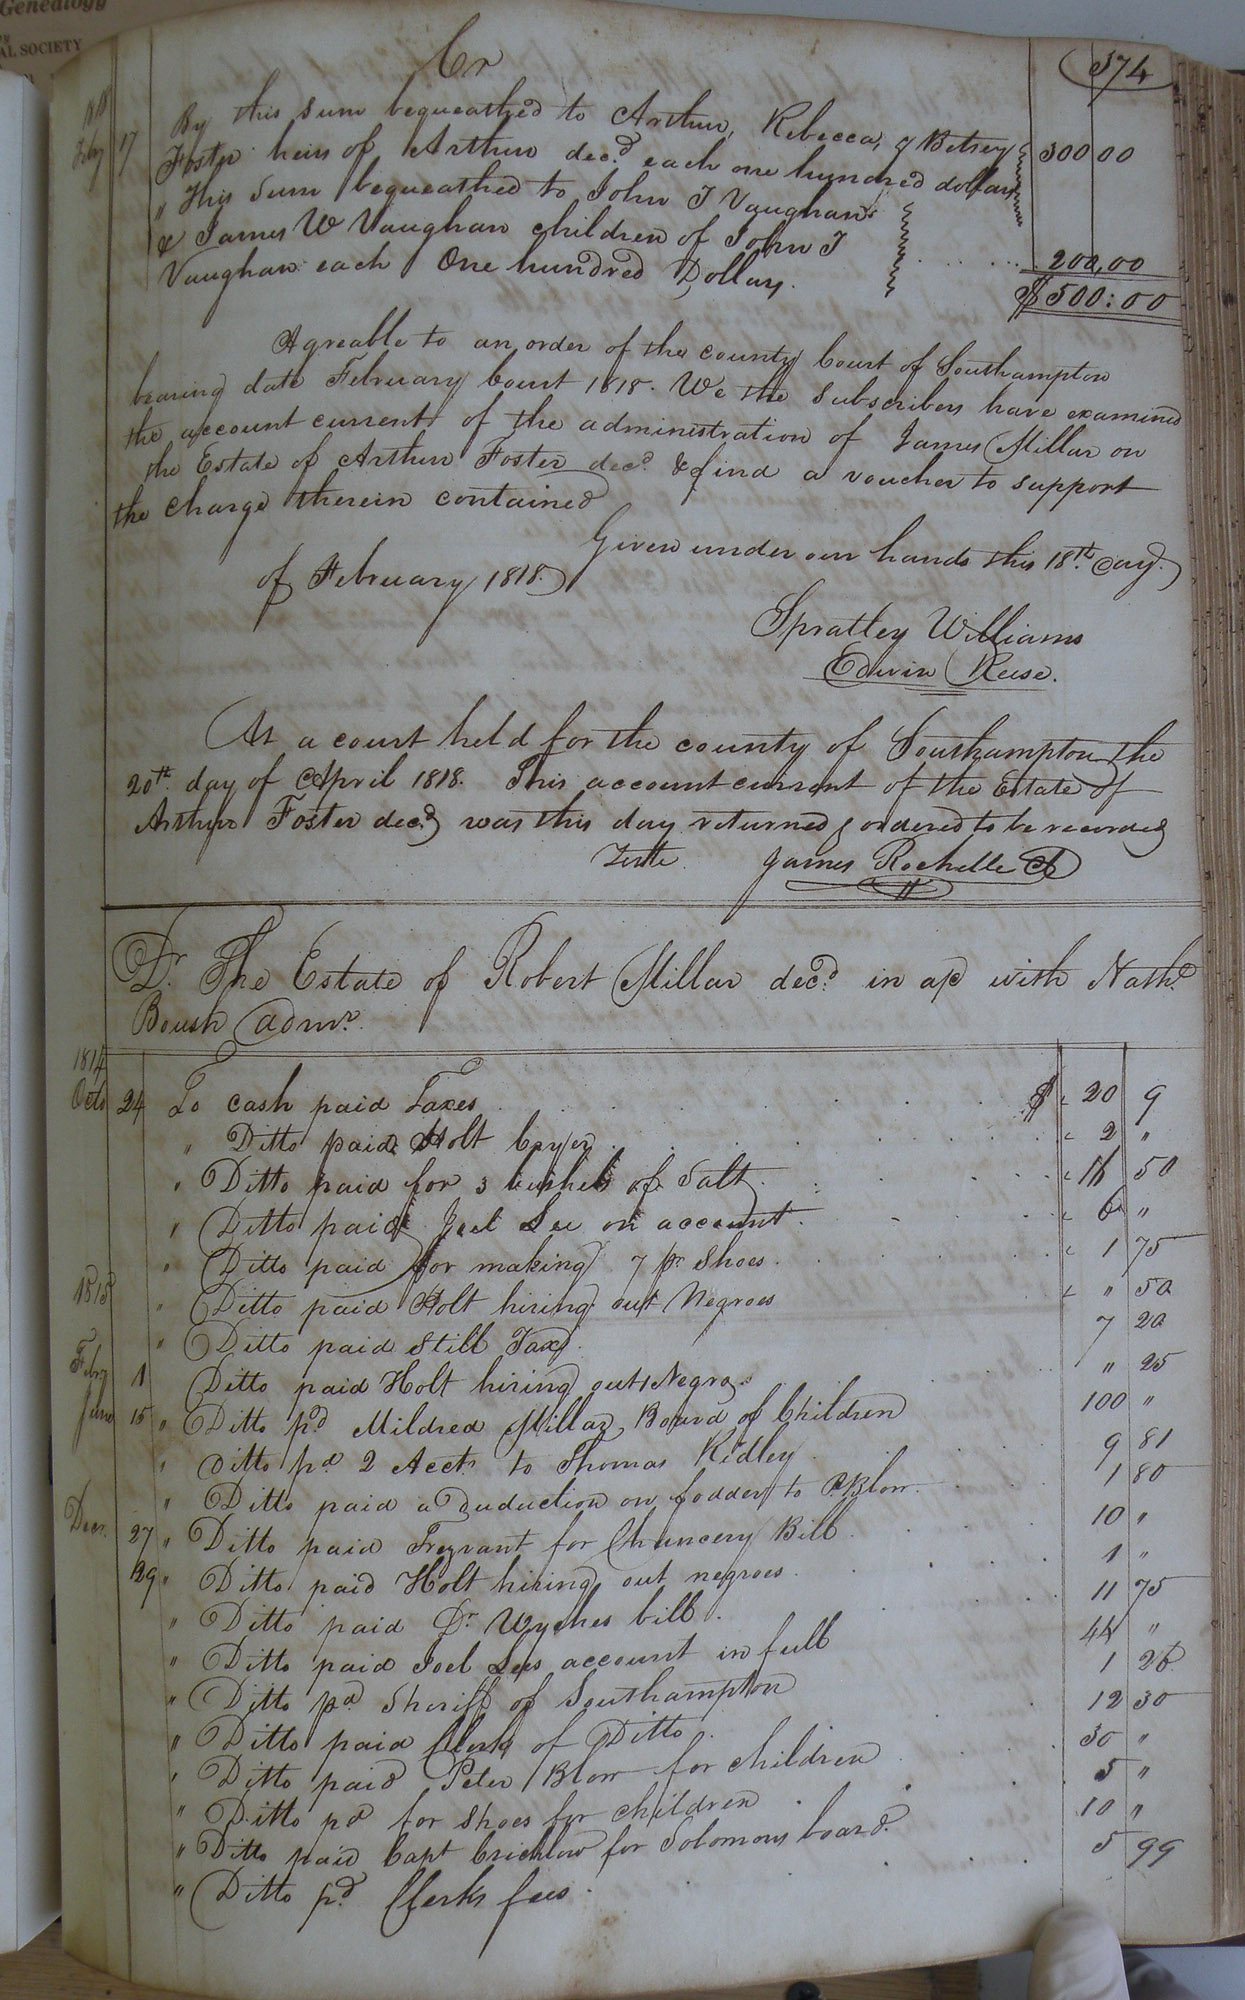 Genealogy
AL SOCIETY
Cr
374
1818
Feby 17 By this sum bequeathed to Arthur, Rebecca, & Betsey
Foster heirs of Arthur decd. each one hundred dollars 300 00
" This sum bequeathed to John T Vaughan
& James W Vaughan children of John T
Vaughan each One hundred Dollars. 200,00
$500:00
Agreable to an order of the county Court of Southampton
bearing date February Court 1818. We the Subscribers have examined
the account current of the administration of James Millar on
the Estate of Arthur Foster decd. & find a voucher to support
the charge therein contained
Given under our hands this 18th. day
of February 1818.
Spratley Williams
Edwin Reese.
At a court held for the county of Southampton the
20th. day of April 1818. This account current of the Estate of
Arthur Foster decd. was this day returned & ordered to be recorded
Teste James Rochelle C
Dr. The Estate of Robert Millar decd. in a/c with Nathl.
Boush admr.
1814
Octo 24 To cash paid Taxes $ 20 9
" Ditto paid Holt cryer 2 "
" Ditto paid for 3 bushels of Salt 16 50
" Ditto paid Joel Lee on account 6 "
" Ditto paid for making 7 pr Shoes 1 75
1815 " Ditto paid Holt hiring out Negroes " 50
" Ditto paid Still Tax 7 20
Feby 1 Ditto paid Holt hiring out Negroes " 25
June 15 " Ditto pd Mildred Millar Board of Children 100 "
" Ditto pd 2 Accts to Thomas Ridley 9 81
" Ditto paid a Deduction on fodder to R Blow 1 80
Decr. 27 " Ditto paid Trezvant for Chancery Bill 10 "
29 " Ditto paid Holt hiring out negroes 1 "
" Ditto paid Dr. Wyches bill 11 75
" Ditto paid Joel Lees account in full 44 "
" Ditto pd Sheriff of Southampton 1 26
" Ditto paid Clerk of Ditto 12 30
" Ditto paid Peter Blow for children 30 "
" Ditto pd for shoes for children 5 "
" Ditto paid Capt Crichlow for Solomons board. 10 "
" Ditto pd. Clerks fees 5 99